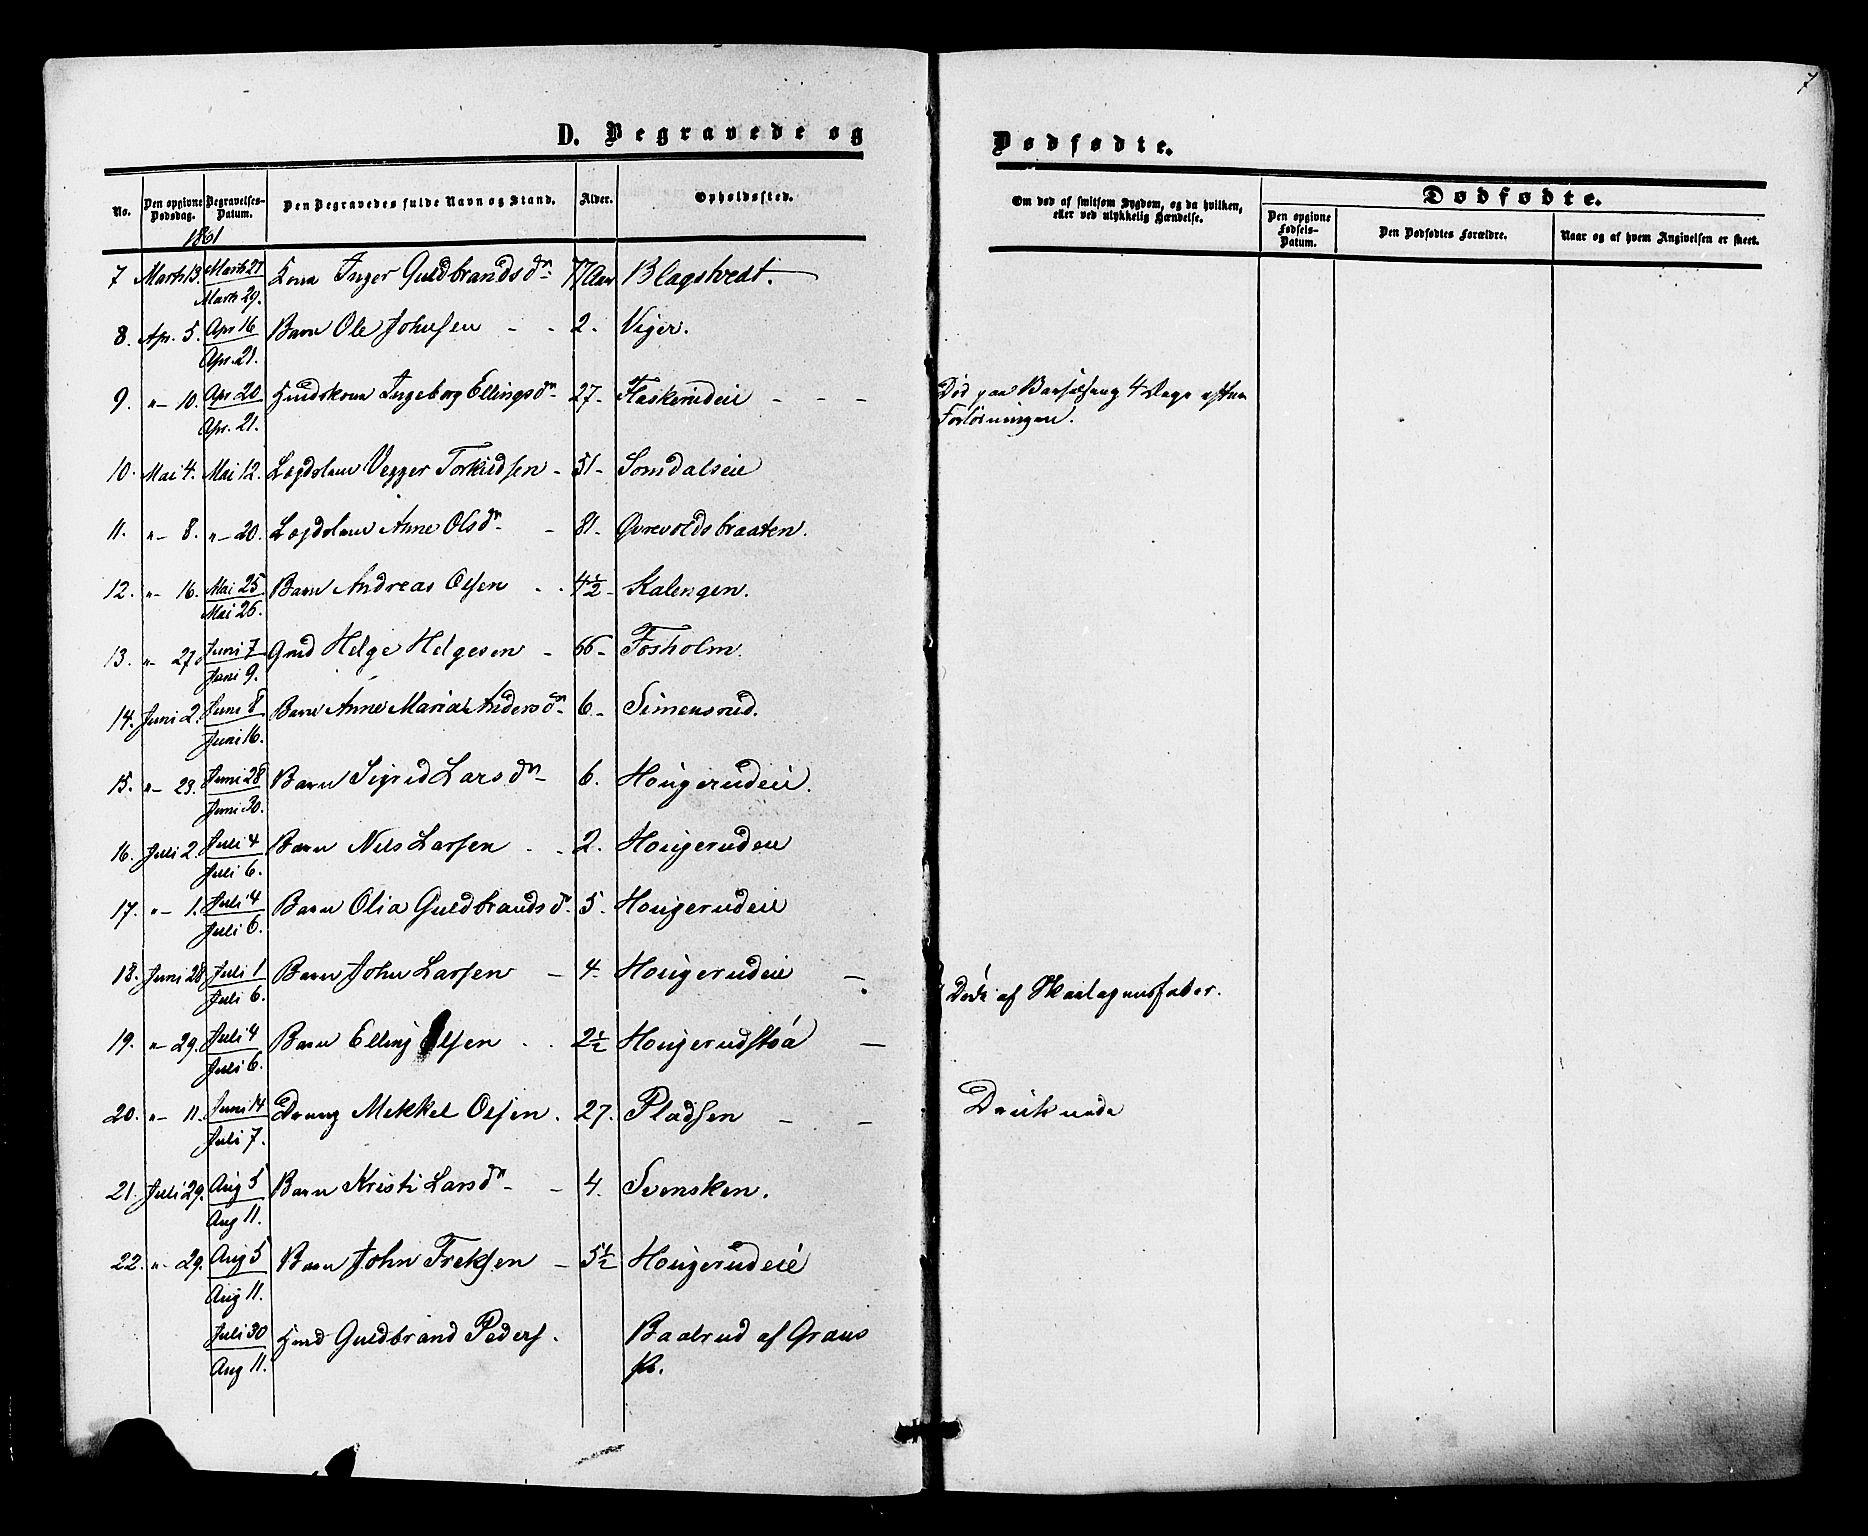 7
D. Begravede og Dødfødte.
No. Den opgivne Dødsdag. Begravelses-Datum. Den Begravedes fulde Navn og Stand. Alder. Opholdssted. Om død af smitsom Sygdom, og da hvilken, eller ved ulykkelig Hændelse. Dødfødte.
Den opgivne Fødsels-Datum. Den Dødfødtes Forældre. Naar og af hvem Angivelsen er skeet.
1861
7 Marts 13. Marts 27 Kona Inger Guldbrandsdn 77 Aar Blagstvedt.
Marts 29.
8. Apr. 5. Apr 16 Barn Ole Johnsen - - 2. Viger.
Apr. 21.
9. "- 10. Apr 20 Huuskone Ingeborg Ellingsdn 27- Flaskerudeie - - - Død paa Barselseng 4 Dage efter
Apr. 21. Forløsningen.
10. Mai 4. Mai 12. Lægdslem Vegger Torkildsen - 51- Somdalseie
11. "- 8. "- 20. Lægdslem Anne Olsdn - 81- Øvrevoldsbraaten.
12. "- 16. Mai 25. Barn Andreas Olsen - . 4½- Kalengen.
Mai 26.
13. "- 27. Juni 7 Gmd Helge Helgesen - 66- Fosholm.
Juni 9.
14. Juni 2. Juni 8 Barn Anne Maria Andersdn 6- Simensrud.
Juni 16.
15. "- 23. Juni 28 Barn Sigrid Larsdn 6. Hougerudeie.
Juni 30.
16. Juli 2. Juli 4 Barn Nils Larsen . . 2. Hougerudeie
Juli 6.
17. "- 1. Juli 4 Barn Olia Guldbrandsd. 5. Hougerudeie
Juli 6.
18. Juni 28 Juli 1 Barn John Larsen - 4. Hougerudeie -
Juli 6. Døde af Skarlagensfeber.
19. "- 29. Juli 4 Barn Elling Olsen . . 2½ Hougerudstøa -
Juli 6.
20. "- 11. Juni 14 Dreng Mekkel Olsen . 27. Pladsen - - Druknede
Juli 7.
21. Juli 29. Aug 5 Barn Kristi Larsdn - - 4. Svensken.
Aug 11.
22. "- 29. Aug 5 Barn John Freksen - 5½ Hougerudeie
Aug 11.
Juli 30 Hmd Guldbrand Peders. Baalrud af Grans
Aug 11. Pr.